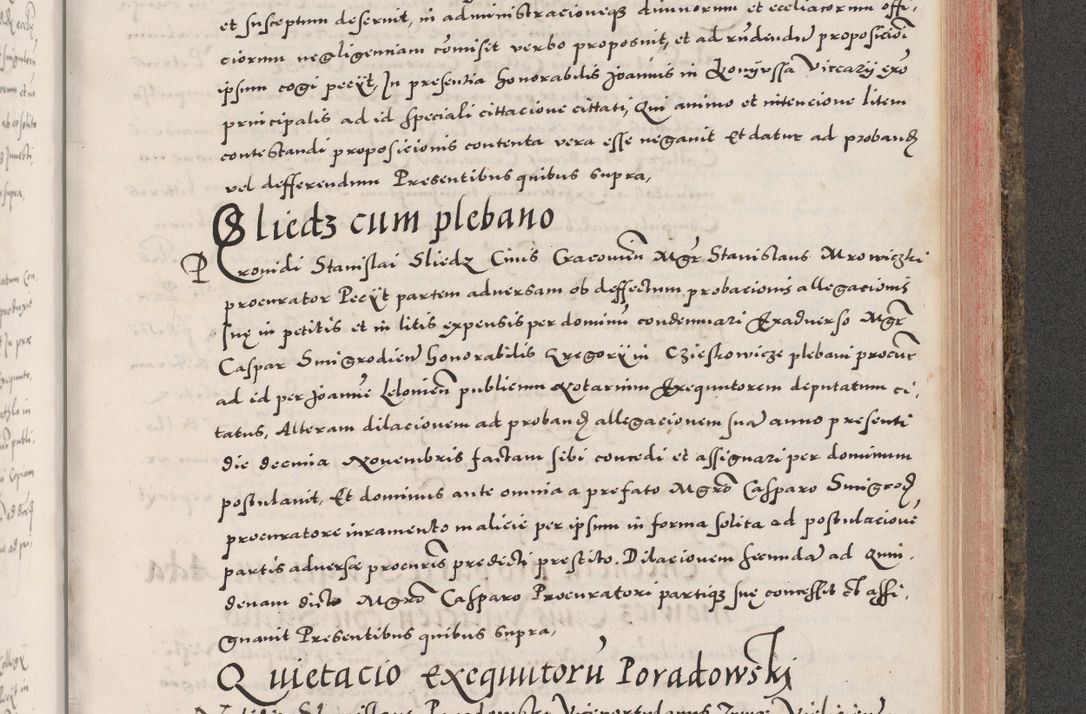 et susceptum deseruit, in administracioneq₃ diuinorum et ecclīacorum offi,
ciorum negligenciam cōmiset verbo proposuit, et ad rūdendū proposicioī
ipsum cogi pecȳt, In presentia honorabilis Joannis in Konyussa Vicearÿ exo
principalis ad id speciali cittacione cittati, Qui animo et intencione litem
contestandi proposicionis contenta vera esse negauit Et datur ad proband
vel defferendum Presentibus quibus supra,
Sliedz cum plebano
Prouidi Stanislai Sliedz Ciuis Cracouień Mgr Stanislaus Mrowiczki
procurator Pecÿt partem aduersam ob deffectum probacionis allegacionis
suę in petitis et in litis expensis per dominū condemnari Exaduerso Mgr
Caspar Smigrodień honorabilis Gregorÿ in Czieskowicze plebani procur
ad id per Joannē Lelonień publicum Notarium Exequutorem deputatum ci,
tatus, Alteram dilacionem ad proband allegacionem suā anno presenti
die decima Nouembris factam sibi concedi et assignari per dominum
postulauit, Et dominus ante omnia a prefato Mgrō Casparo Smigrod
procuratore iuramento malicie per ipsum in forma solita ad postulacionē
partis aduersæ procuris predicti prestito. Dilacionem secundā ad Quin,
denam dicto Mgrō Casparo Procuratori partiq₃ suę concessit et assi,
gnauit Presentibus quibus supra,
Quietacio exequutorū Poradowski